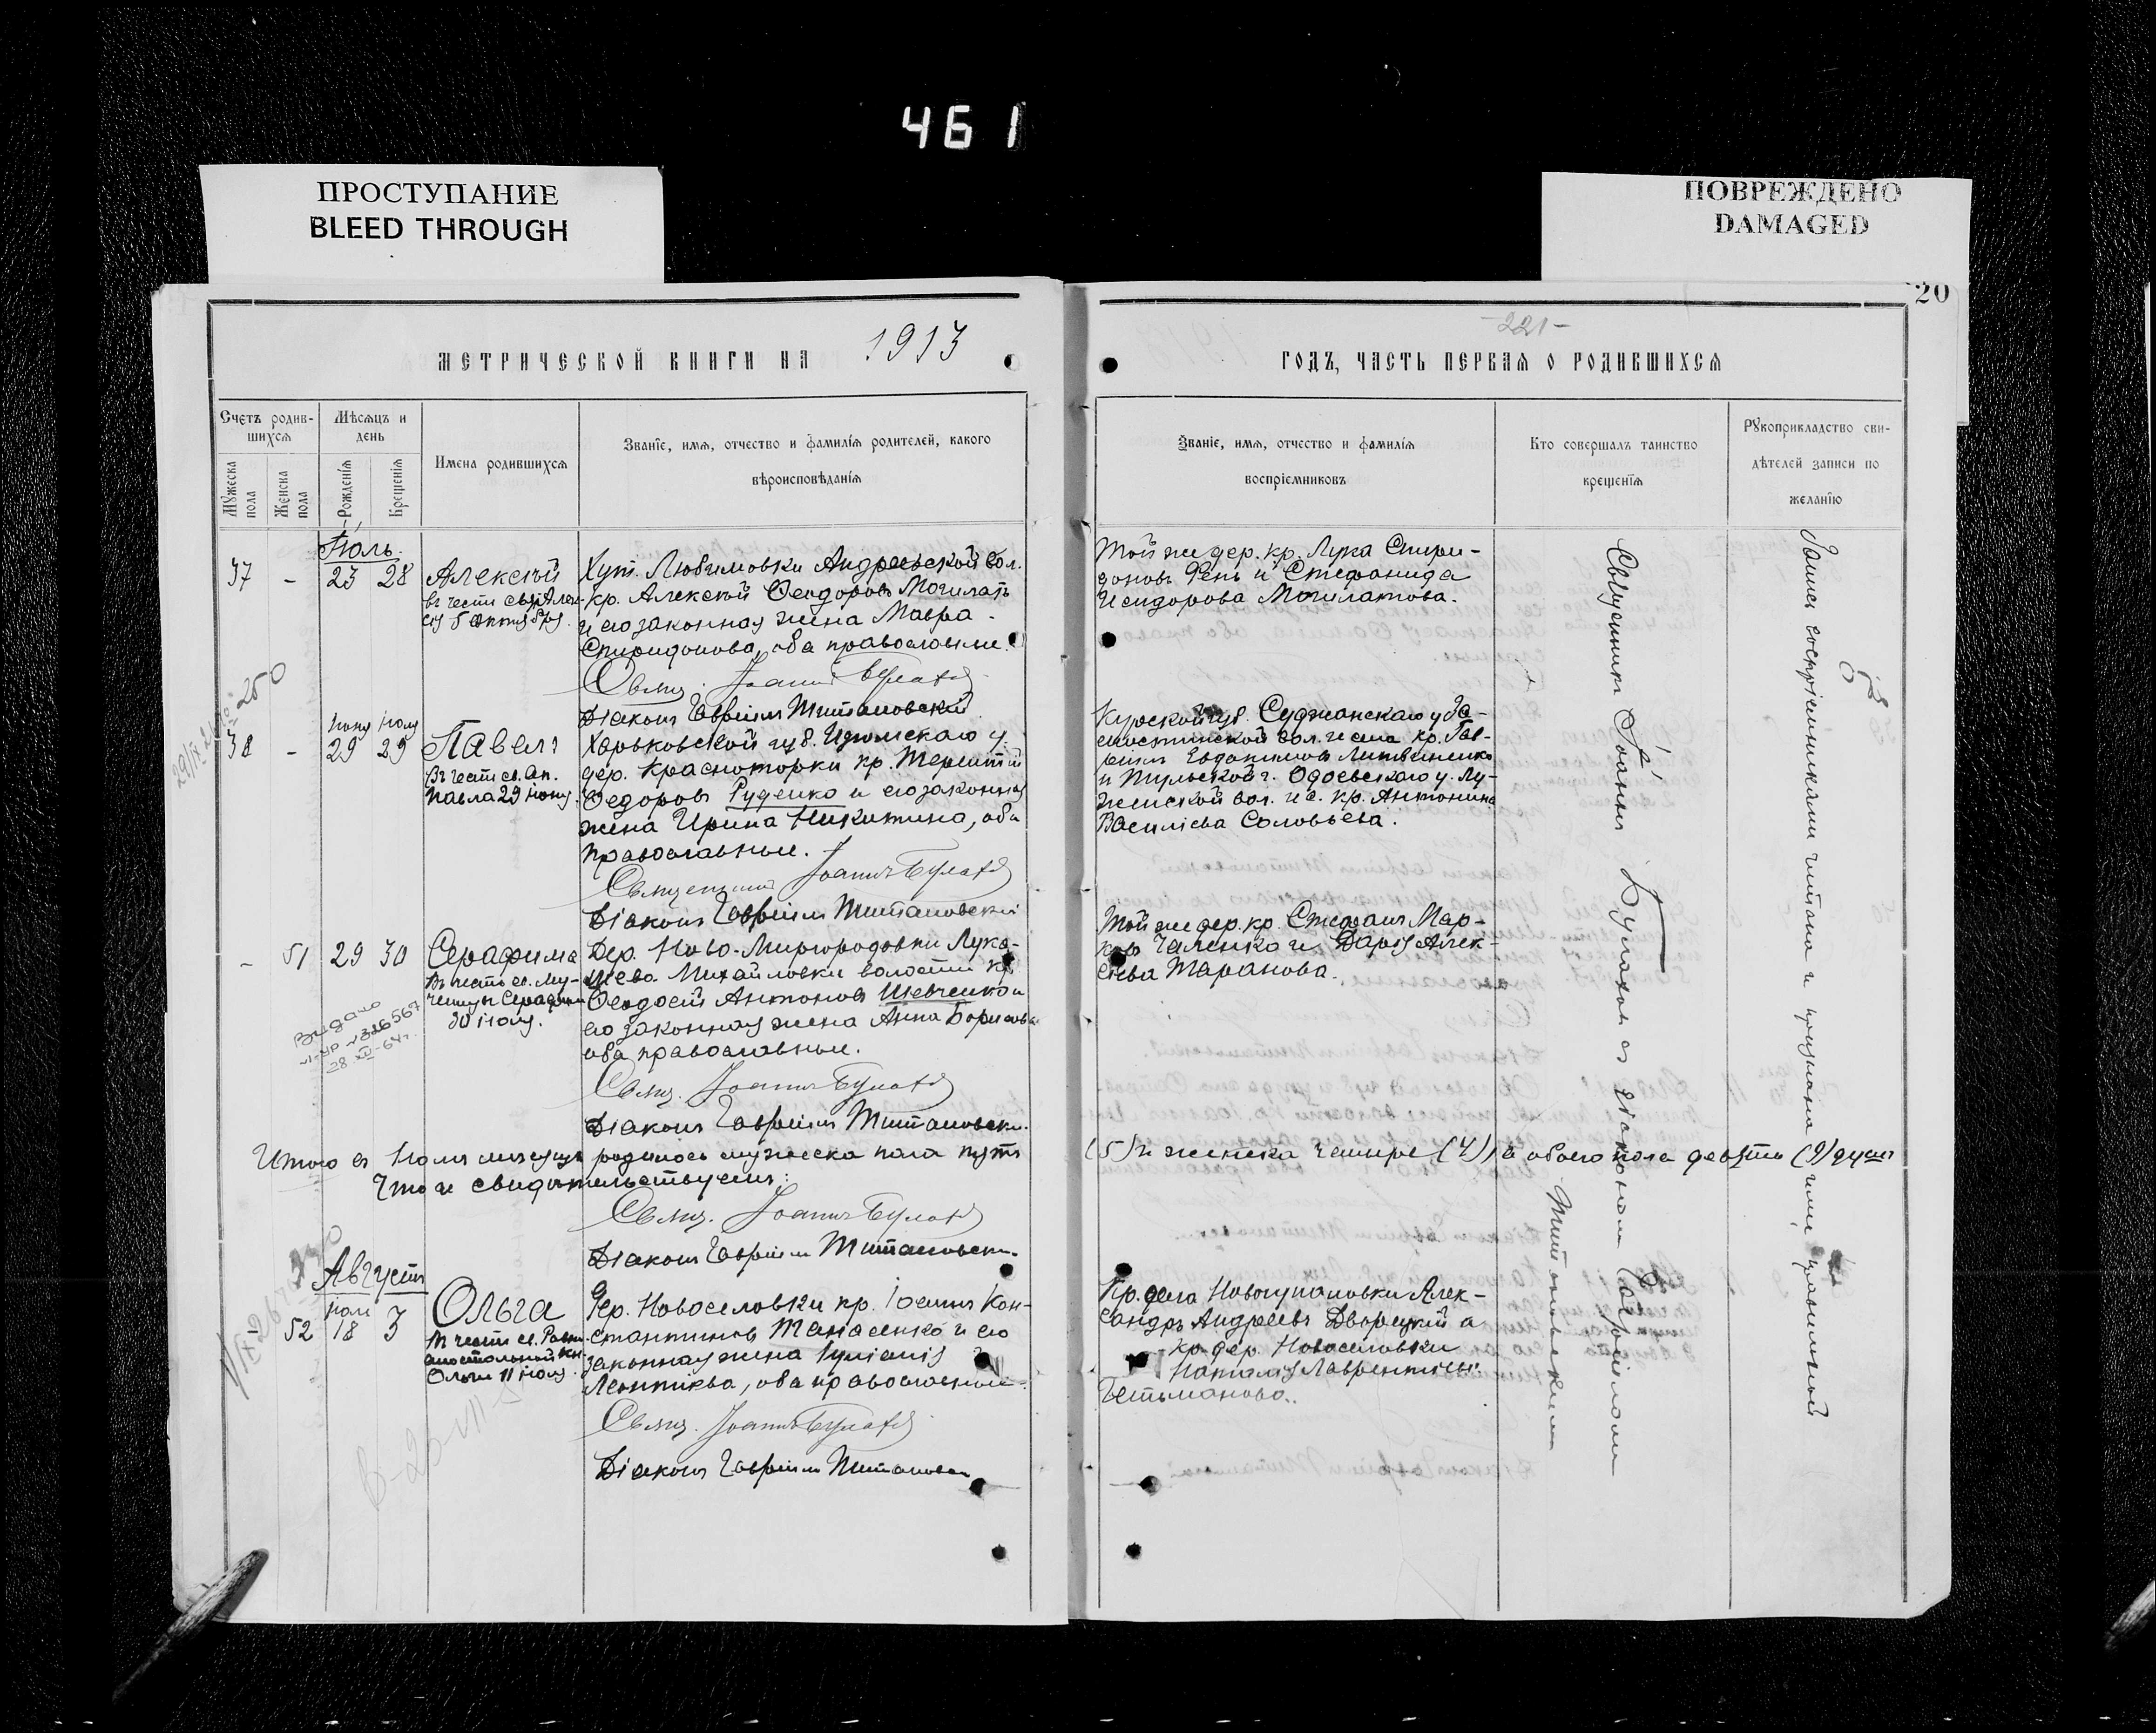 461
ПРОСТУПАНИЕ
BLEED THROUGH
ПОВРЕЖДЕНО
DAMAGED
20
-221-
МЕТРИЧЕСКОЙ КНИГИ НА 1913
ГОДЪ, ЧАСТЬ ПЕРВАЯ О РОДИВШИХСЯ
Счетъ родив-
шихся
Мужеска пола
Женска пола
Мѣсяцъ и
день
Рожденія
Крещенія
Имена родившихся
Званіе, имя, отчество и фамилія родителей, какого
вѣроисповѣданія
Званіе, имя, отчество и фамилія
воспріемниковъ
Кто совершалъ таинство
крещенія
Рукоприкладство сви-
дѣтелей записи по
желанію
Іюль.
37 - 23 28
Алексѣй
въ честь
5 Октября.
Хут. Любимовки Андреевской вол.
кр. Алексѣй Ѳеодоровъ Могилатъ
и его законная жена Мавра
Спиридонова, оба православные.
Свящ. Іоаннъ Булаховъ
Діаконъ Гавріилъ Титановскій
Той же дер. кр. Лука Спири-
доновъ Фень и Стефанида
Исидорова Могилатова.
250
38 - Іюня 29 Іюля 29
Павелъ
Въ честь св. Ап.
Павла 29 Іюня.
Харьковской губ. Изюмскаго у.
дер. Красноторки кр. Терентій
Ѳедоровъ Руденко и его законная
жена Ирина Никитина, оба
православные.
Священникъ Іоаннъ Булаховъ
Діаконъ Гавріилъ Титановскій
Курской губ. Суджанскаго у. За-
мостинской вол. и села кр. Гав-
риилъ Евдокимовъ Литвиненко
и Тульской г. Одоевскаго у. Лу-
женской вол. и с. кр. Антонина
Василіева Соловьева.
- 51 29 30
Серафима
Въ честь св. Му-
ченицы Серафимы
30 Іюля.
Дер. Ново-Миргородовки Лука-
шево-Михайловки волости кр.
Ѳеодосій Антоновъ Шевченко и
его законная жена Анна Борисова
оба православные.
Свящ. Іоаннъ Булаховъ
Діаконъ Гавріилъ Титановскій.
Той же дер. кр. Стефанъ Мар-
ковъ Чаленко и Дарія Алек-
сѣева Таранова.
Видано
28.XII-64г.
Итого въ Іюлѣ мѣсяцѣ родилось мужеска пола пять (5) и женска четыре (4), а обоего пола девять (9) душъ
Что и свидѣтельствуемъ:
Свящ. Іоаннъ Булаховъ
Діаконъ Гавріилъ Титановскій.
Августъ
52 Іюля 18 3
Ольга
въ честь св. Равно-
апостольной Кн.
Ольги 11 Іюля.
Дер. Новоселовки кр. Іоаннъ Кон-
стантиновъ Танасенко и его
законная жена Іуліанія
Леонтіева, оба православные.
Свящ. Іоаннъ Булаховъ
Діаконъ Гавріилъ Титановскій
Кр. села Новогупаловки Алек-
сандръ Андреевъ Дворецкій а
кр. дер. Новоселовки
Наталія Лаврентіева
Гетьманова.
Священникъ Іоаннъ Булаховъ съ діакономъ Гавріиломъ
Титановскимъ
Запись воспріемниками читана и признана ими правильной